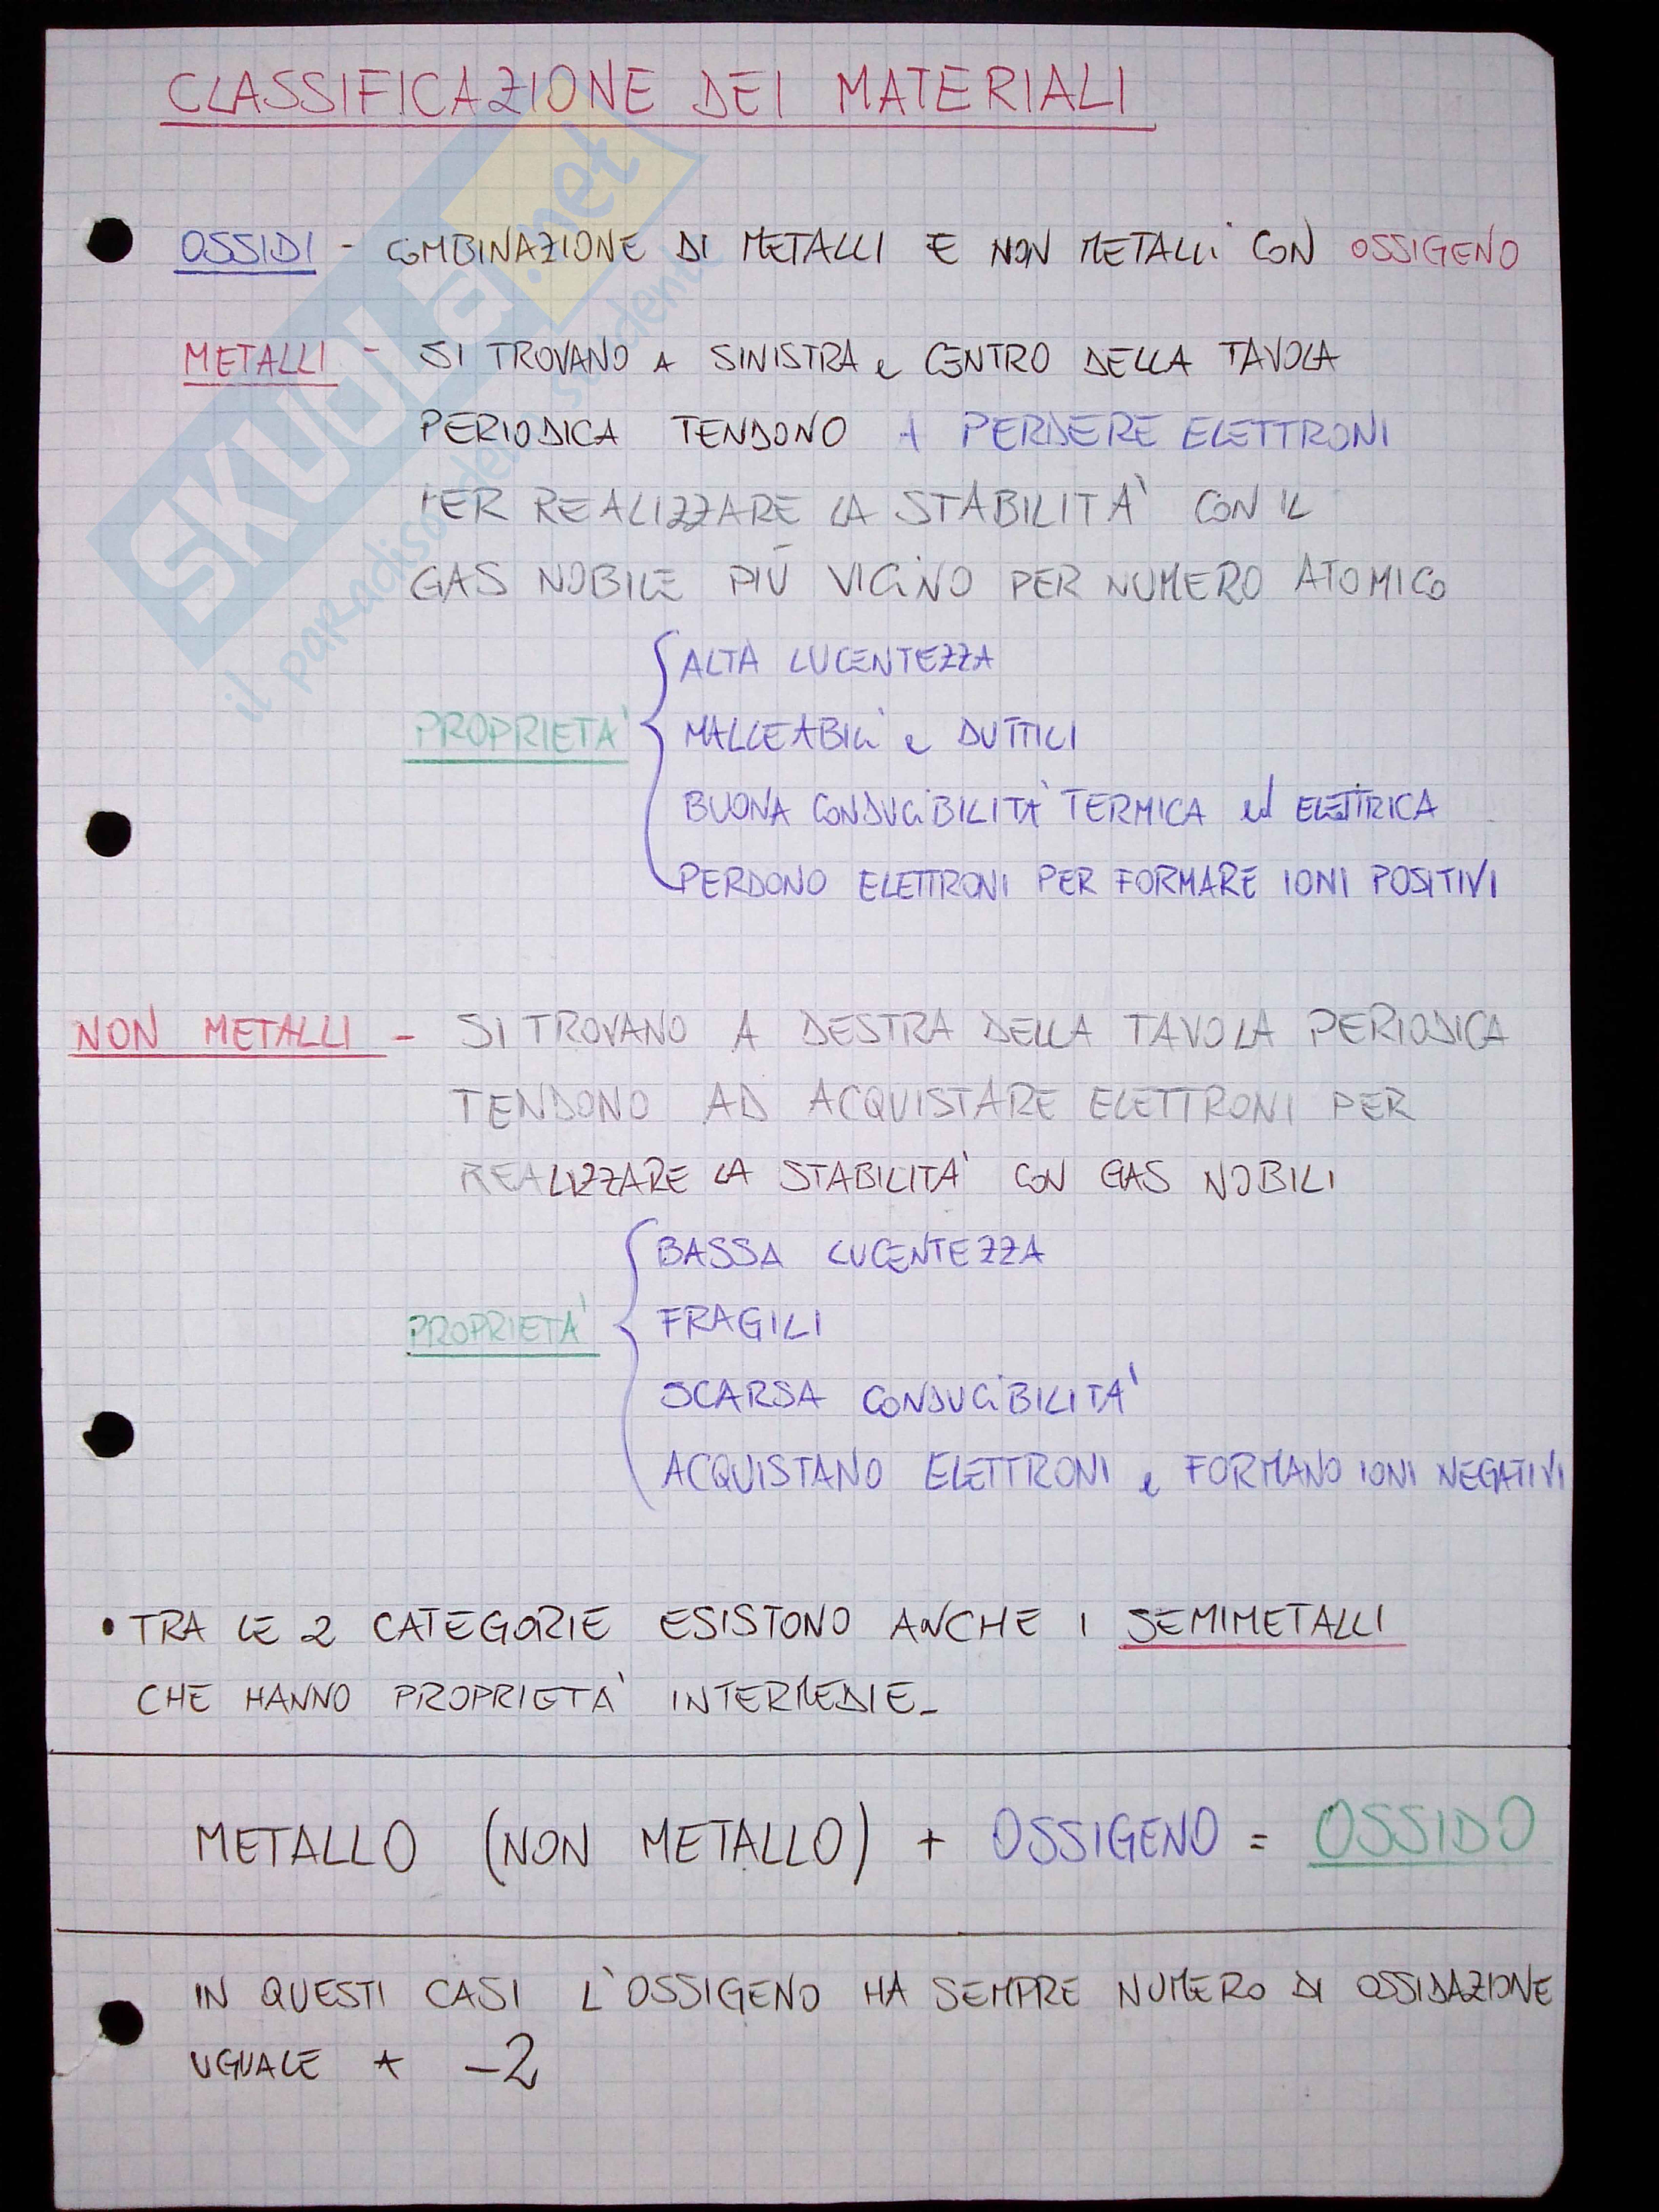 CLASSIFICAZIONE DEI MATERIALI
OSSIDI - COMBINAZIONE DI METALLI E NON METALLI CON OSSIGENO
METALLI - SI TROVANO A SINISTRA e CENTRO DELLA TAVOLA
PERIODICA TENDONO A PERDERE ELETTRONI
PER REALIZZARE LA STABILITA' CON IL
GAS NOBILE PIÙ VICINO PER NUMERO ATOMICO
ALTA LUCENTEZZA
PROPRIETA' MALLEABILI e DUTTILI
BUONA CONDUCIBILITA' TERMICA ed ELETTRICA
PERDONO ELETTRONI PER FORMARE IONI POSITIVI
NON METALLI - SI TROVANO A DESTRA DELLA TAVOLA PERIODICA
TENDONO AD ACQUISTARE ELETTRONI PER
REALIZZARE LA STABILITA' CON GAS NOBILI
BASSA LUCENTEZZA
PROPRIETA' FRAGILI
SCARSA CONDUCIBILITA'
ACQUISTANO ELETTRONI e FORMANO IONI NEGATIVI
• TRA LE 2 CATEGORIE ESISTONO ANCHE I SEMIMETALLI
CHE HANNO PROPRIETA' INTERMEDIE_
METALLO (NON METALLO) + OSSIGENO = OSSIDO
IN QUESTI CASI L'OSSIGENO HA SEMPRE NUMERO DI OSSIDAZIONE
UGUALE A -2
SKUOLa.net
il paradiso dello studente